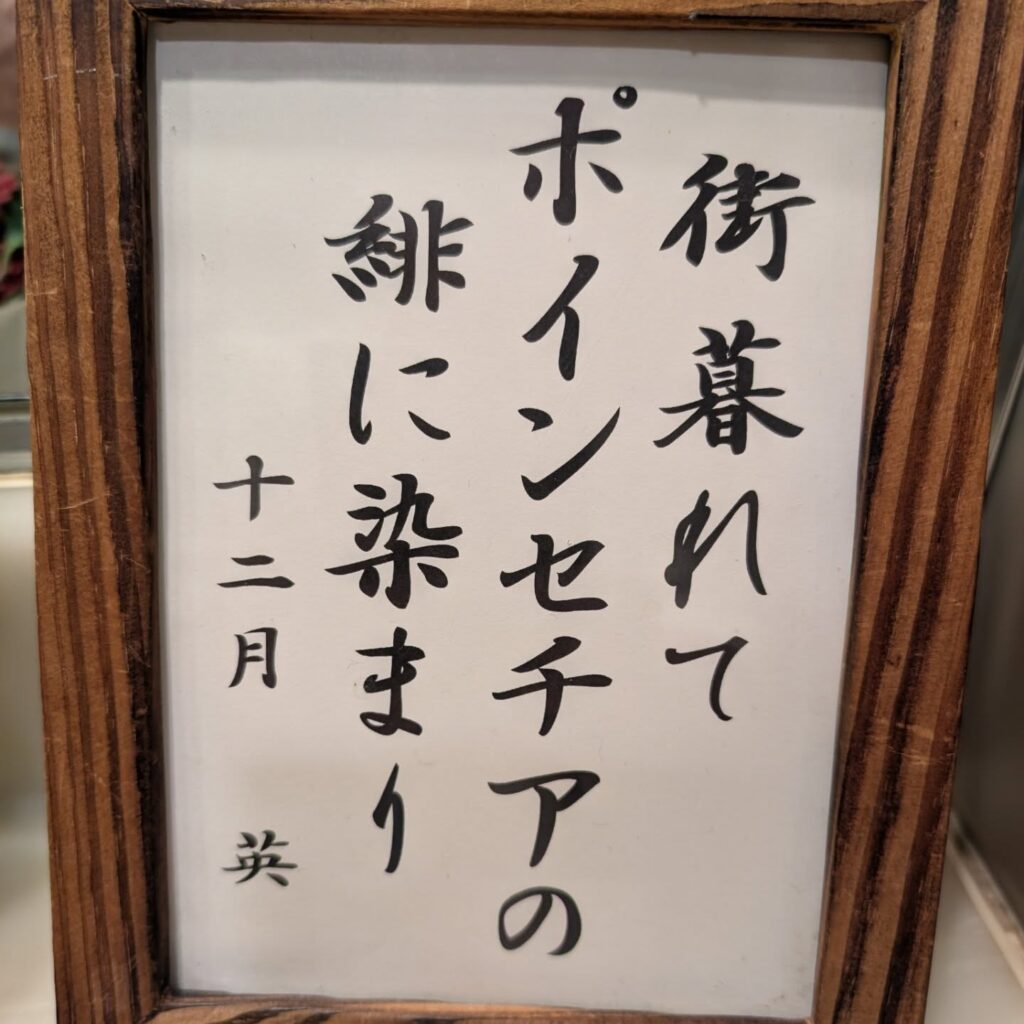 街暮れて
ポインセチアの
緋に染まり
十二月 英